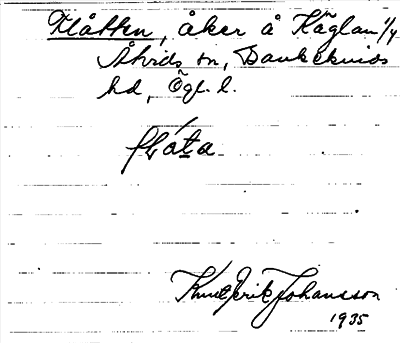 Klåtten, åker å Häglan 1/4
Åtvids sn, Bankekinds
hd, Ögl. l.
Knut Erik Johansson
1935